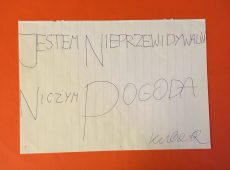 JESTEM NIEPRZEWIDYWALNA
NICZYM POGODA